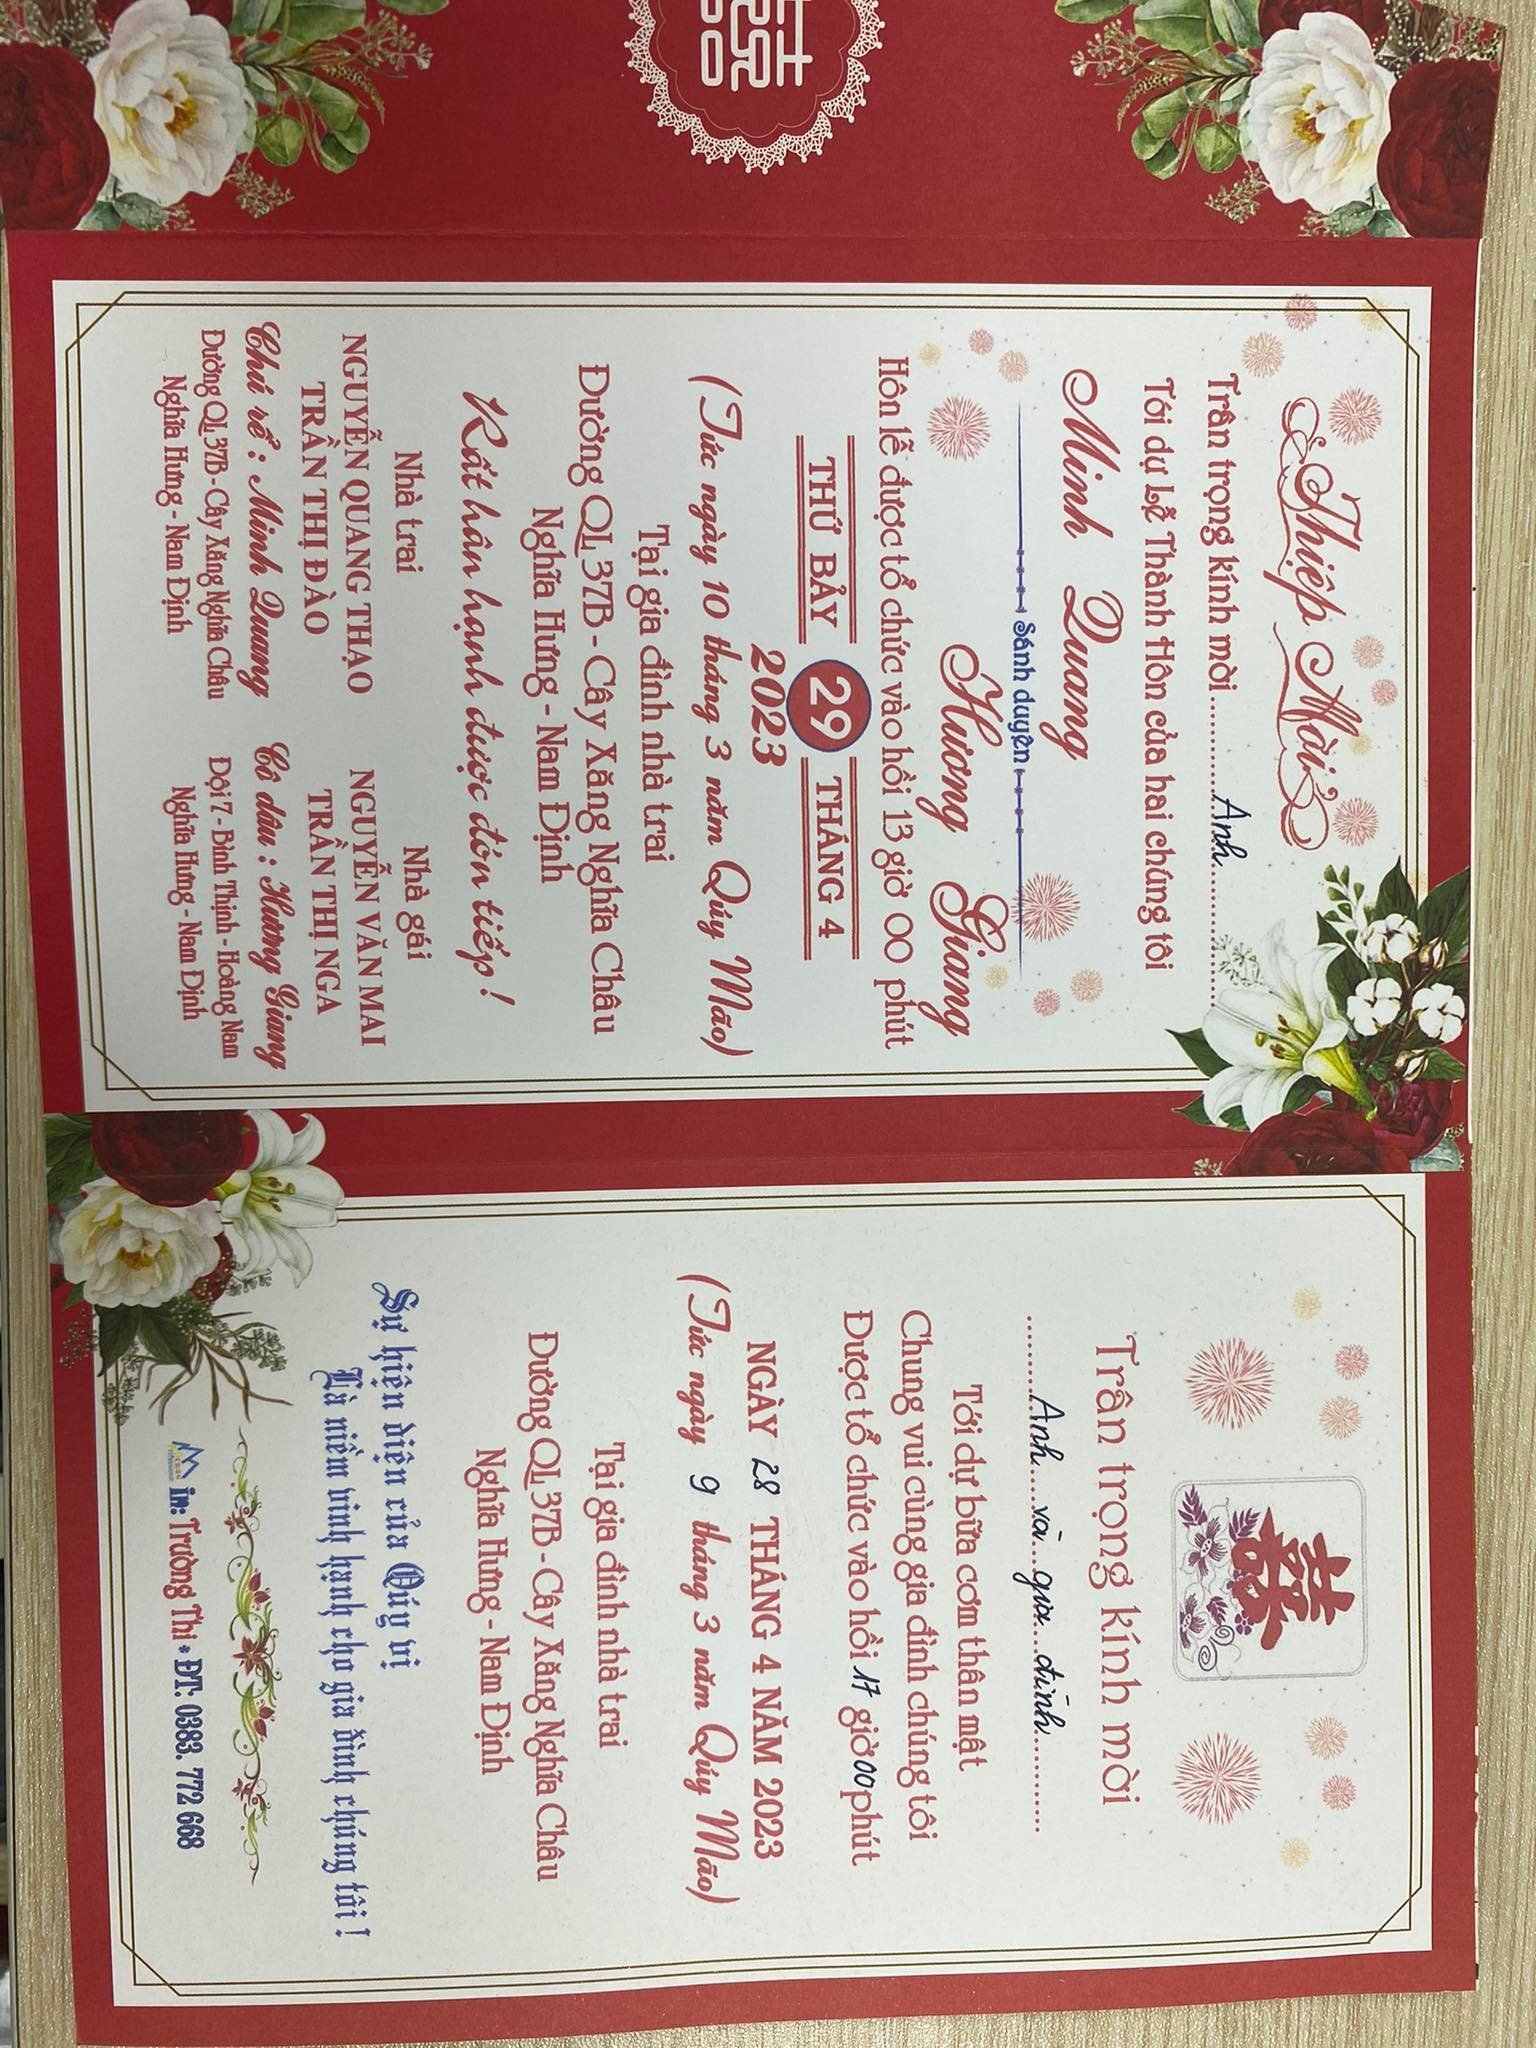 囍
Thiệp Mời
Trân trọng kính mời.......Anh.......
Tới dự Lễ Thành Hôn của hai chúng tôi
Minh Quang
Sánh duyên
Hương Giang
Hôn lễ được tổ chức vào hồi 13 giờ 00 phút
THỨ BẢY 29 THÁNG 4
2023
(Tức ngày 10 tháng 3 năm Qúy Mão)
Tại gia đình nhà trai
Đường QL37B - Cây Xăng Nghĩa Châu
Nghĩa Hưng - Nam Định
Rất hân hạnh được đón tiếp !
Nhà trai
NGUYỄN QUANG THẠO
TRẦN THỊ ĐÀO
Chú rể : Minh Quang
Đường QL37B - Cây Xăng Nghĩa Châu
Nghĩa Hưng - Nam Định
Nhà gái
NGUYỄN VĂN MAI
TRẦN THỊ NGA
Cô dâu : Hương Giang
Đội 7 - Bình Thịnh - Hoàng Nam
Nghĩa Hưng - Nam Định
囍
Trân trọng kính mời
.......Anh.....và....gia...đình..........
Tới dự bữa cơm thân mật
Chung vui cùng gia đình chúng tôi
Được tổ chức vào hồi 17 giờ 00 phút
NGÀY 28 THÁNG 4 NĂM 2023
(Tức ngày 9 tháng 3 năm Qúy Mão)
Tại gia đình nhà trai
Đường QL37B - Cây Xăng Nghĩa Châu
Nghĩa Hưng - Nam Định
Sự hiện diện của Qúy vị
Là niềm vinh hạnh cho gia đình chúng tôi !
in: Trường Thi * ĐT: 0383. 772 668